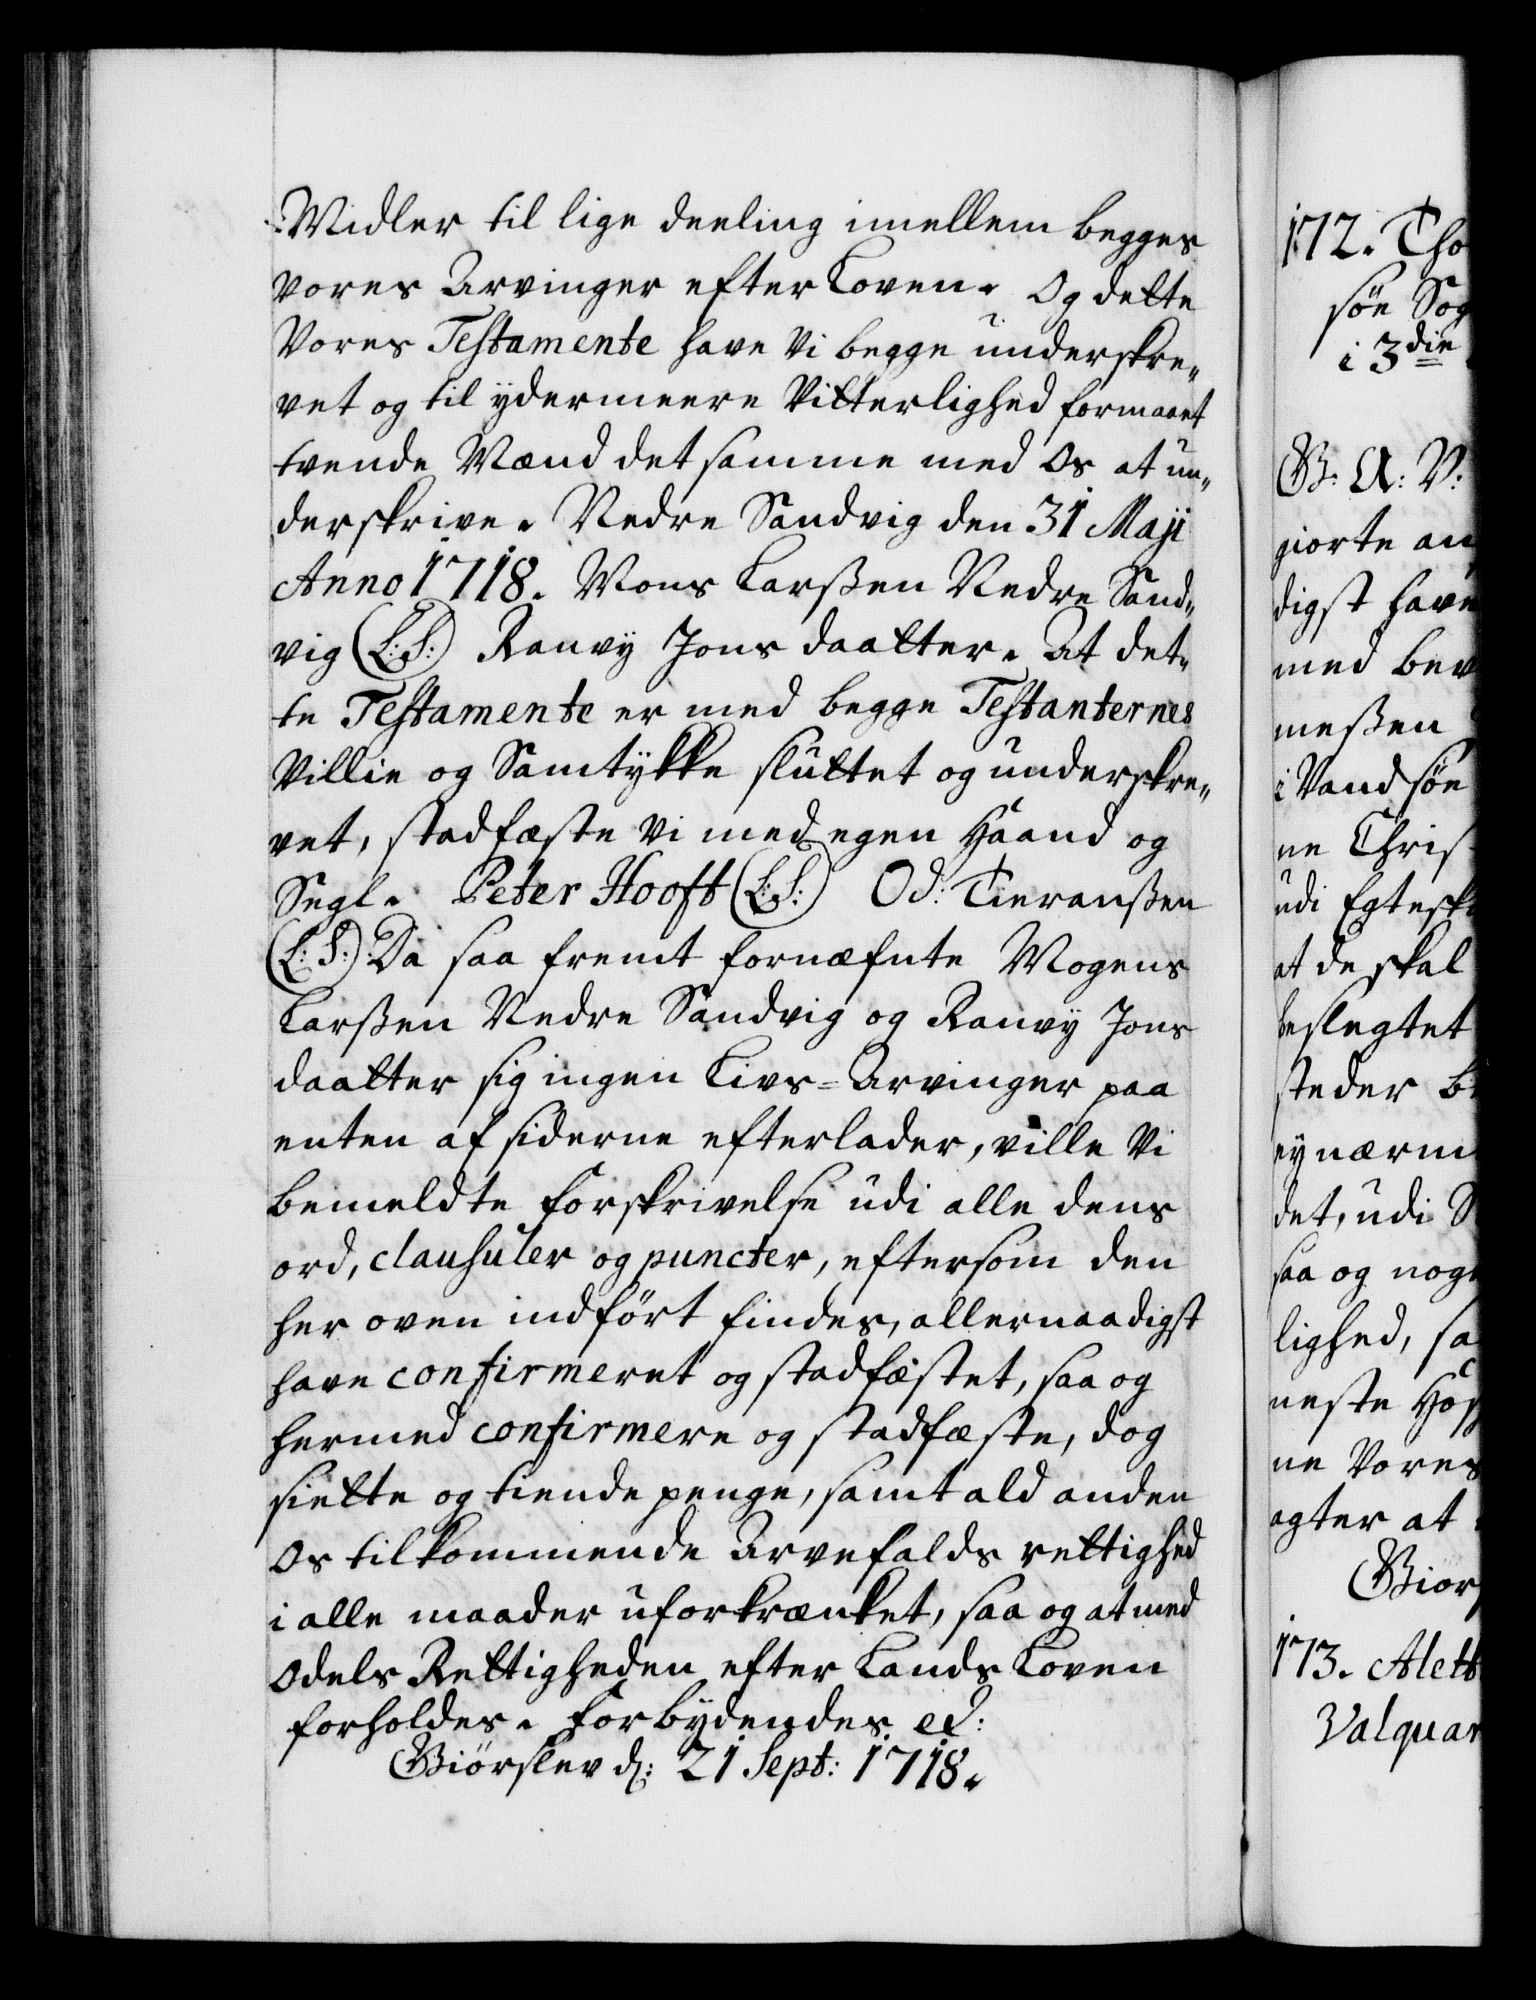 Midler til lige deeling imellem begges
vores Arvinger efter Loven. Og dette
Vores Testamente have Vi begge underskre„
vet og til ydermeere Vitterlighed formaaet
tvende Mænd det samme med Os at un„
derskrive. Nedre Sandvig den 31 Maji
Anno 1718. Mons Larßen Nedre Sand„
vig (L:S:) Ranvy Jons daatter. At det„
te Testamente er med begge Testanternes
Villie og Samtykke sluttet og underskre„
vet, stadfæste Vi med egen Haand og
Segl. Peter Hooft (L:S:) Od: Tieranßen
(L:S:) Da saa fremt fornæfnte Mogens
Larßen Nedre Sandvig og Ranvy Jons
daatter sig ingen Livs-Arvinger paa
enten af siderne efterlader, ville Vi
bemeldte forskrivelse udi alle dens
ord, clausuler og puncter, eftersom den
her oven indført findes, allernaadigst
have confirmeret og stadfæstet, saa og
hermed confirmere og stadfæste, dog
siette og tiende penge, samt ald anden
Os tilkommende Arvefalds rettighed
i alle maader uforkrænket, saa og at med
Odels Rettigheden efter Lands Loven
forholdes. Forbydendes ec:
Giørslev d: 21 Sept: 1718.
172. Tho
søe Sog
i 3die
G: A: V:
giorte an
digst have
med bev
meßen
i Vandsøe
ne Chris
udi Egtesk
at de skal
beslegtet
steder b
ey nærm
det, udi S
saa og nog
lighed, sa
neste Høy
ne Vores
agter at
Giør
173. Alett
Valquar